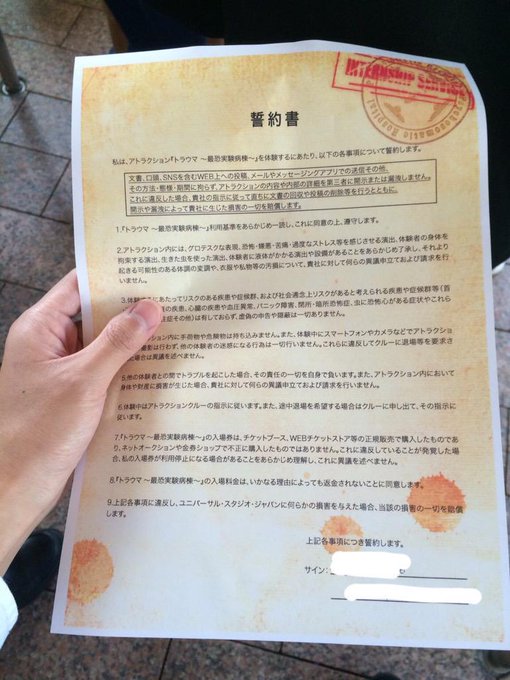 INTERNSHIP
Psychosomatic Hospital
誓約書
私は、アトラクション『トラウマ ～最恐実験病棟～』を体験するにあたり、以下の各事項について誓約します。
文書、口頭、SNSを含むWEB上への投稿、メールやメッセージングアプリでの送信その他、
その方法・態様・期間に拘らず、アトラクションの内容や内部の詳細を第三者に開示または漏洩しません。
これに違反した場合、貴社の指示に従って直ちに文書の回収や投稿の削除等を行うとともに、
開示や漏洩によって貴社に生じた損害の一切を賠償します。
1.『トラウマ ～最恐実験病棟～』利用基準をあらかじめ一読し、これに同意の上、遵守します。
2.アトラクション内には、グロテスクな表現、恐怖・嫌悪・苦痛・過度なストレス等を感じさせる演出、体験者の身体を
拘束する演出、生きた虫を使った演出、体験者に液体がかかる演出や設備があることをあらかじめ了承し、それより
起きる可能性のある体調の変調や、衣服や私物等の汚損について、貴社に対して何らの異議申立ておよび請求を行
いません。
3.体験するにあたってリスクのある疾患や症候群、および社会通念上リスクがあると考えられる疾患や症候群等（首
の疾患、心臓の疾患や血圧異常、パニック障害、閉所・暗所恐怖症、虫に恐怖心がある症状やこれら
症その他）は有しておらず、虚偽の申告や隠蔽は一切ありません。
ション内に手荷物や危険物は持ち込みません。また、体験中にスマートフォンやカメラなどでアトラクショ
撮影は行わず、他の体験者の迷惑になる行為は一切行いません。これらに違反してクルーに退場等を要求さ
れた場合は異議を述べません。
5.他の体験者との間でトラブルを起こした場合、その責任の一切を自身で負います。また、アトラクション内において
身体や財産に損害が生じた場合、貴社に対して何らの異議申立ておよび請求を行いません。
6.体験中はアトラクションクルーの指示に従います。また、途中退場を希望する場合はクルーに申し出て、その指示に
従います。
7.『トラウマ ～最恐実験病棟～』の入場券は、チケットブース、WEBチケットストア等の正規販売で購入したものであ
り、ネットオークションや金券ショップで不正に購入したものではありません。これに違反していることが発覚した場
合、私の入場券が利用停止になる場合があることをあらかじめ理解し、これに異議を述べません。
8.『トラウマ ～最恐実験病棟～』の入場料金は、いかなる理由によっても返金されないことに同意します。
9.上記各事項に違反し、ユニバーサル・スタジオ・ジャパンに何らかの損害を与えた場合、当該の損害の一切を賠償
します。
上記各事項につき誓約します。
サイン：